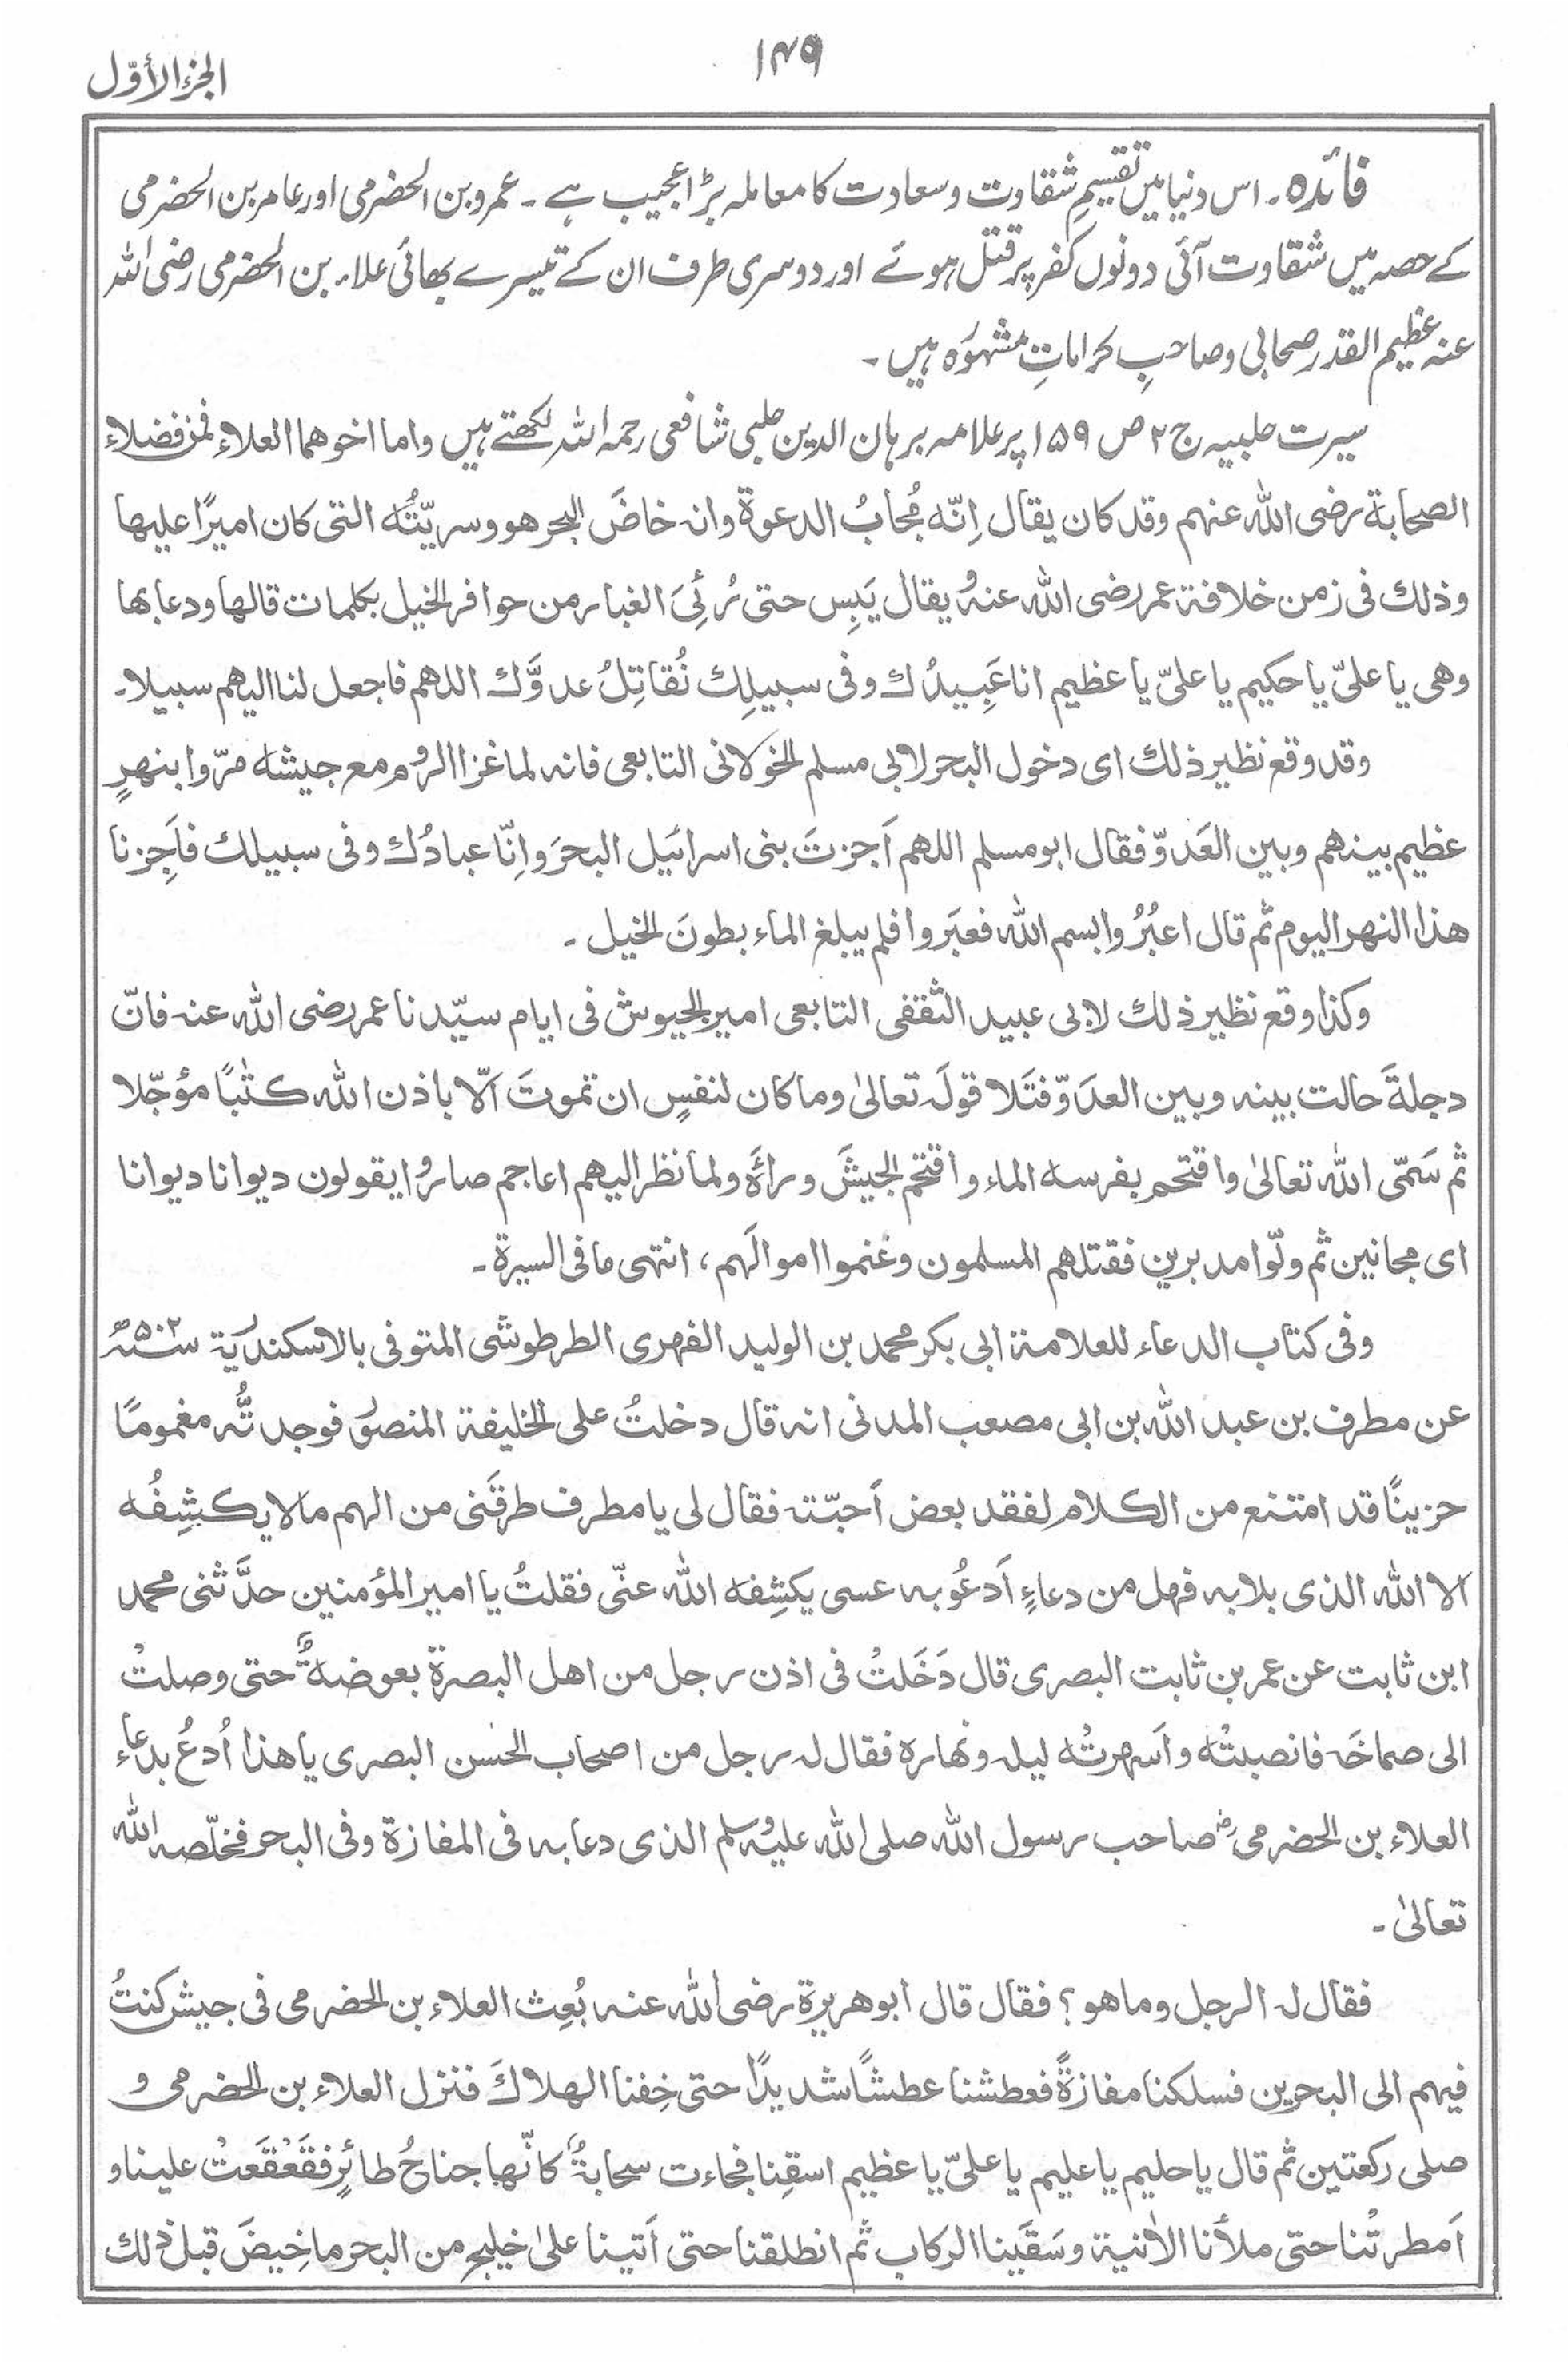 ۱۴۹
الجزء الأوّل
فائدہ۔ اس دنیا میں تقسیمِ شقاوت و سعادت کا معاملہ بڑا عجیب ہے۔ عمرو بن الحضرمی اور عامر بن الحضرمی
کے حصہ میں شقاوت آئی دونوں کفر پر قتل ہوئے اور دوسری طرف ان کے تیسرے بھائی علاء بن الحضرمی رضی اللہ
عنہ عظیم القدر صحابی و صاحبِ کراماتِ مشہورہ ہیں۔
سیرت حلبیہ ج ۲ ص ۱۵۹ پر علامہ برہان الدین حلبی شافعی رحمہ اللہ لکھتے ہیں واما اخوهما العلاء فمن فضلاء
الصحابة رضی الله عنهم وقد کان یقال اِنّه مُجابُ الدعوة وانه خاضَ البحر هو وسریّتُه التی کان امیرًا علیها
وذلك فی زمن خلافة عمر رضی الله عنهُ یقال یَبِس حتی رُئِیَ الغبار من حوافر الخیل بکلمات قالها ودعا بها
وهی یا علیّ یا حکیم یا علیّ یا عظیم انا عَبِیدُك وفی سبیلِك نُقاتِلُ عدوَّك اللهم فاجعل لنا الیهم سبیلا۔
وقد وقع نظیر ذلك ای دخول البحر لابی مسلم الخولانی التابعی فانه لما غزا الروم مع جیشه مرّوا بنهرٍ
عظیم بینهم وبین العَدوّ فقال ابو مسلم اللهم اَجزتَ بنی اسرائیل البحرَ واِنّا عبادُك وفی سبیلك فاَجِزنا
هذا النهر الیوم ثم قال اعبُرُوا بسم الله فعبَروا فلم یبلغ الماء بطونَ الخیل۔
وکذا وقع نظیر ذلك لابی عبید الثقفی التابعی امیر الجیوش فی ایام سیّدنا عمر رضی الله عنه فانّ
دجلةَ حالت بینه وبین العدَوّ فتَلا قولَه تعالیٰ وما کان لنفسٍ ان تموتَ اِلّا باذن الله کتٰبًا مؤجّلا
ثم سَمّی الله تعالیٰ واقتحم بفرسه الماء واقتحم الجیشَ وراءَہ ولما نظر الیهم اعاجم صاروا یقولون دیوانا دیوانا
ای مجانین ثم ولّوا مدبرین فقتلهم المسلمون وغنموا اموالَهم، انتهی ما فی السیرة۔
وفی کتاب الدعاء للعلامة ابی بکر محمد بن الولید الفهری الطرطوشی المتوفی بالاسکندریّة سنة ۵۰۲ھ
عن مطرف بن عبد الله بن ابی مصعب المدنی انه قال دخلتُ علی الخلیفة المنصور فوجدتُّه مغمومًا
حزینًا قد امتنع من الکلام لفقد بعض اَحبّته فقال لی یا مطرف طرقَنی من الهم ما لا یکشِفُه
الا الله الذی بلا به فهل من دعاءٍ اَدعُو به عسی یکشِفه الله عنّی فقلتُ یا امیر المؤمنین حدَّثنی محمد
ابن ثابت عن عمر بن ثابت البصری قال دَخَلتْ فی اذن رجل من اهل البصرة بعوضةٌ حتی وصلتْ
الی صماخَہ فانصبتْه واَسهرتْه لیله ونهاره فقال له رجل من اصحاب الحسن البصری یا هذا اُدعُ بدعاء
العلاء بن الحضرمیؓ صاحب رسول الله صلی الله علیه وسلم الذی دعا به فی المفازة وفی البحر فخلّصه الله
تعالیٰ۔
فقال له الرجل وما هو؟ فقال قال ابو هریرة رضی الله عنه بُعِث العلاء بن الحضرمی فی جیش کنتُ
فیهم الی البحرین فسلکنا مفازةً فعطشنا عطشًا شدیدًا حتی خِفنا الهلاكَ فنزل العلاء بن الحضرمی و
صلی رکعتین ثم قال یا حلیم یا علیم یا علیّ یا عظیم اسقِنا فجاءت سحابةٌ کانّها جناحُ طائرٍ فقَعْقَعتْ علینا و
اَمطرتْنا حتی ملأنا الاٰنیة وسَقَینا الرکاب ثم انطلقنا حتی اَتینا علیٰ خلیجٍ من البحر ما خِیضَ قبل ذلك